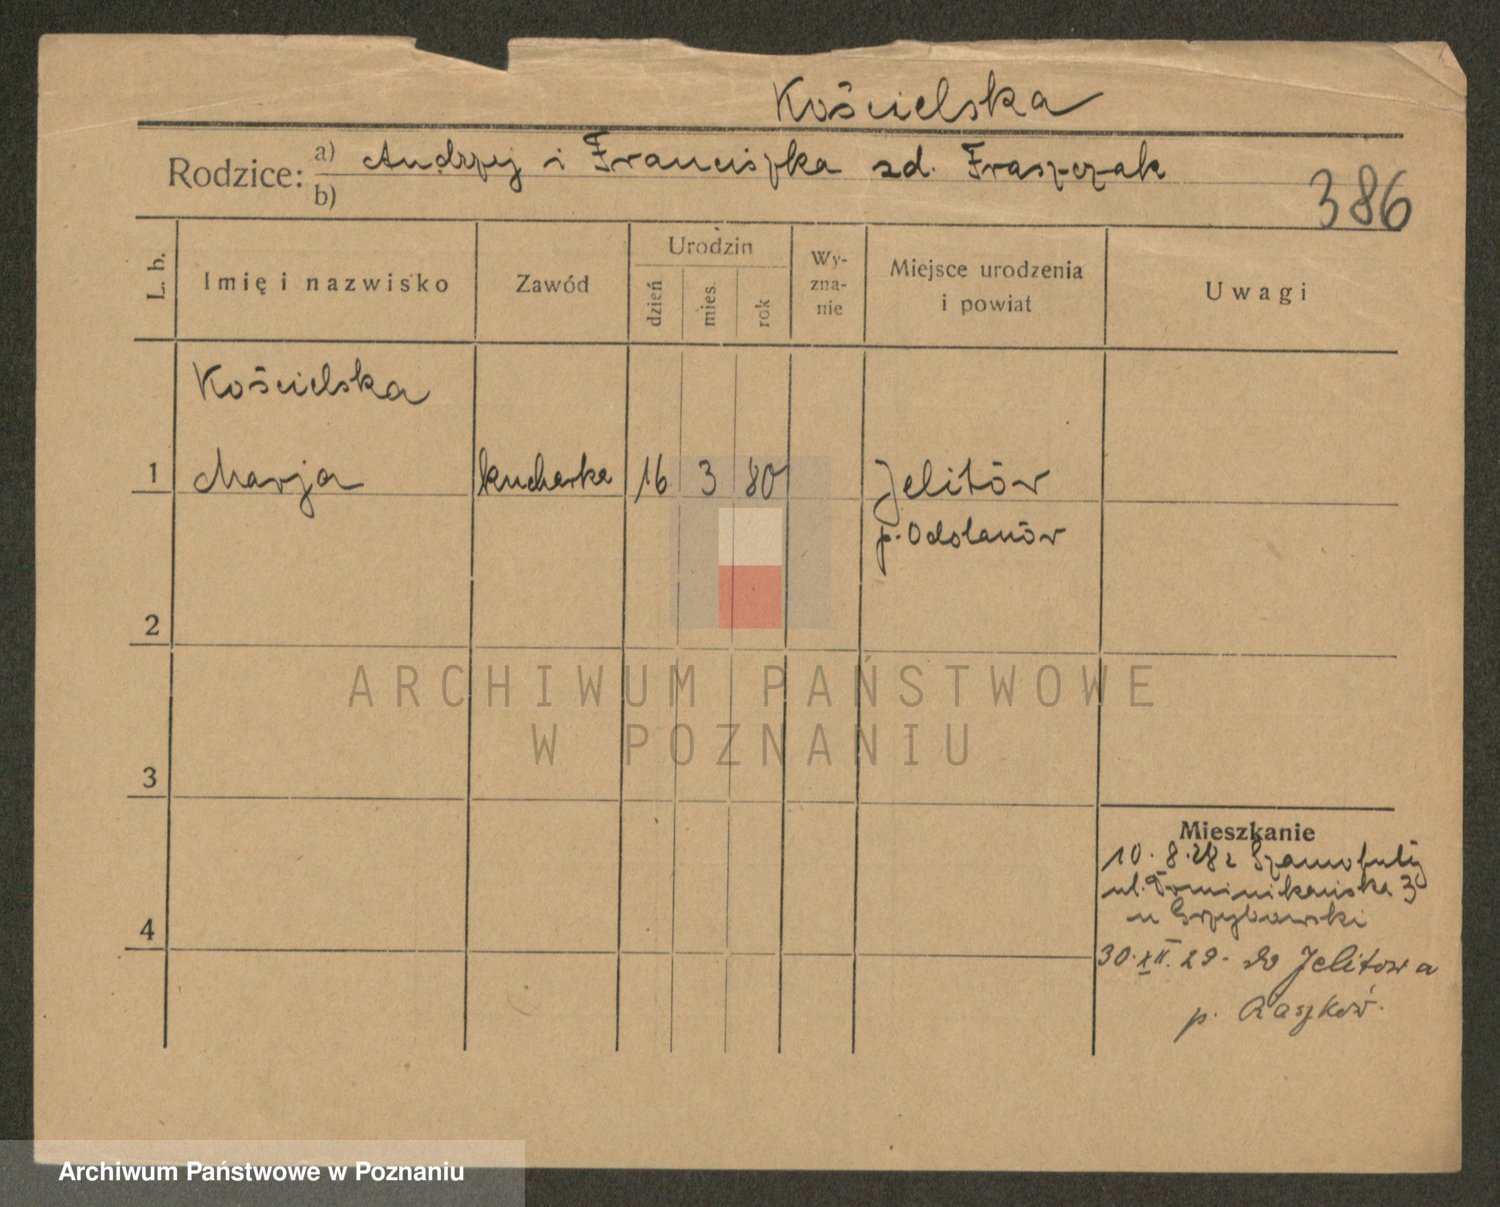 Kościelska
Rodzice: a) Andrzej i Franciszka zd. Fraszczak
b)
386
L. b.
Imię i nazwisko
Zawód
Urodzin
dzień
mies.
rok
Wy-
zna-
nie
Miejsce urodzenia
i powiat
Uwagi
Kościelska
1 Marja kucharka 16 3 80 Jelitów
p. Odolanów
2
3
4
Mieszkanie
10. 8. 28 z Szamotuły
ul. Dominikańska 3
u Grzybowski
30. XII. 29. do Jelitowa
p. Raszków.
ARCHIWUM PAŃSTWOWE
W POZNANIU
Archiwum Państwowe w Poznaniu